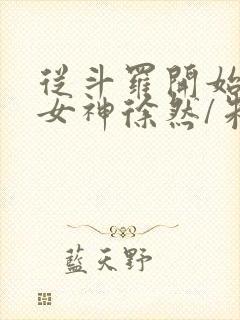 從斗羅開始
女神徐然/朱
藍天野